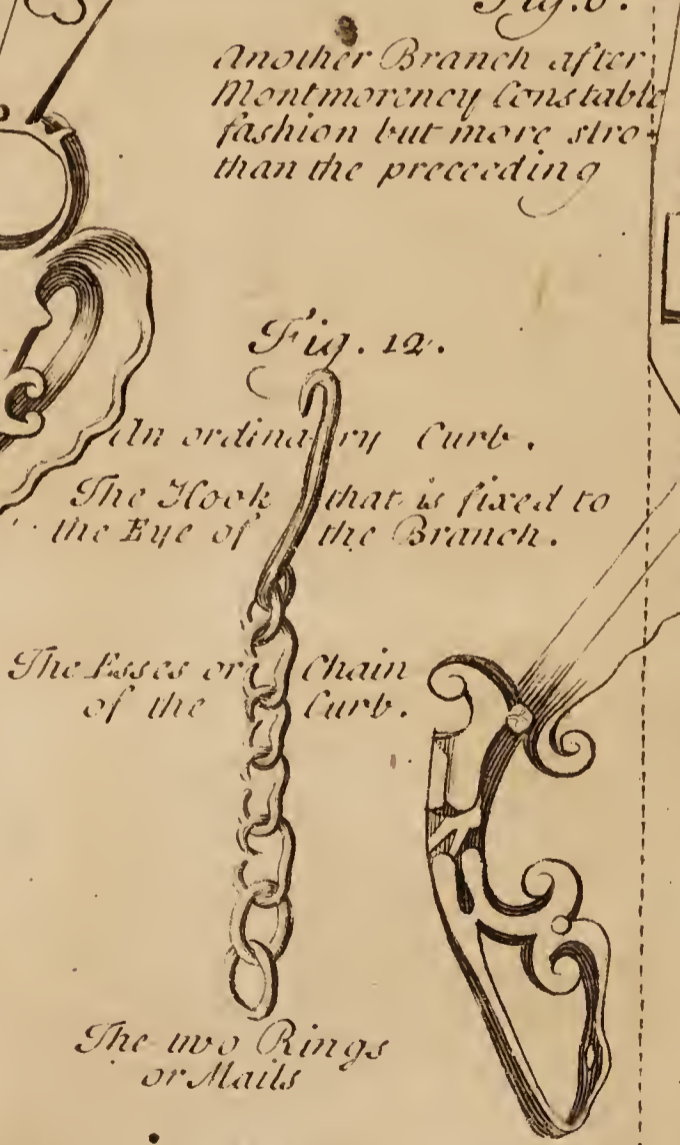 Fig. 6.
Another Branch after
Montmorency Constable
fashion but more stro
than the preceeding
Fig. 12.
An ordinary Curb.
The Hook that is fixed to
the Eye of the Branch.
The Esses or Chain
of the Curb.
The two Rings
or Mails